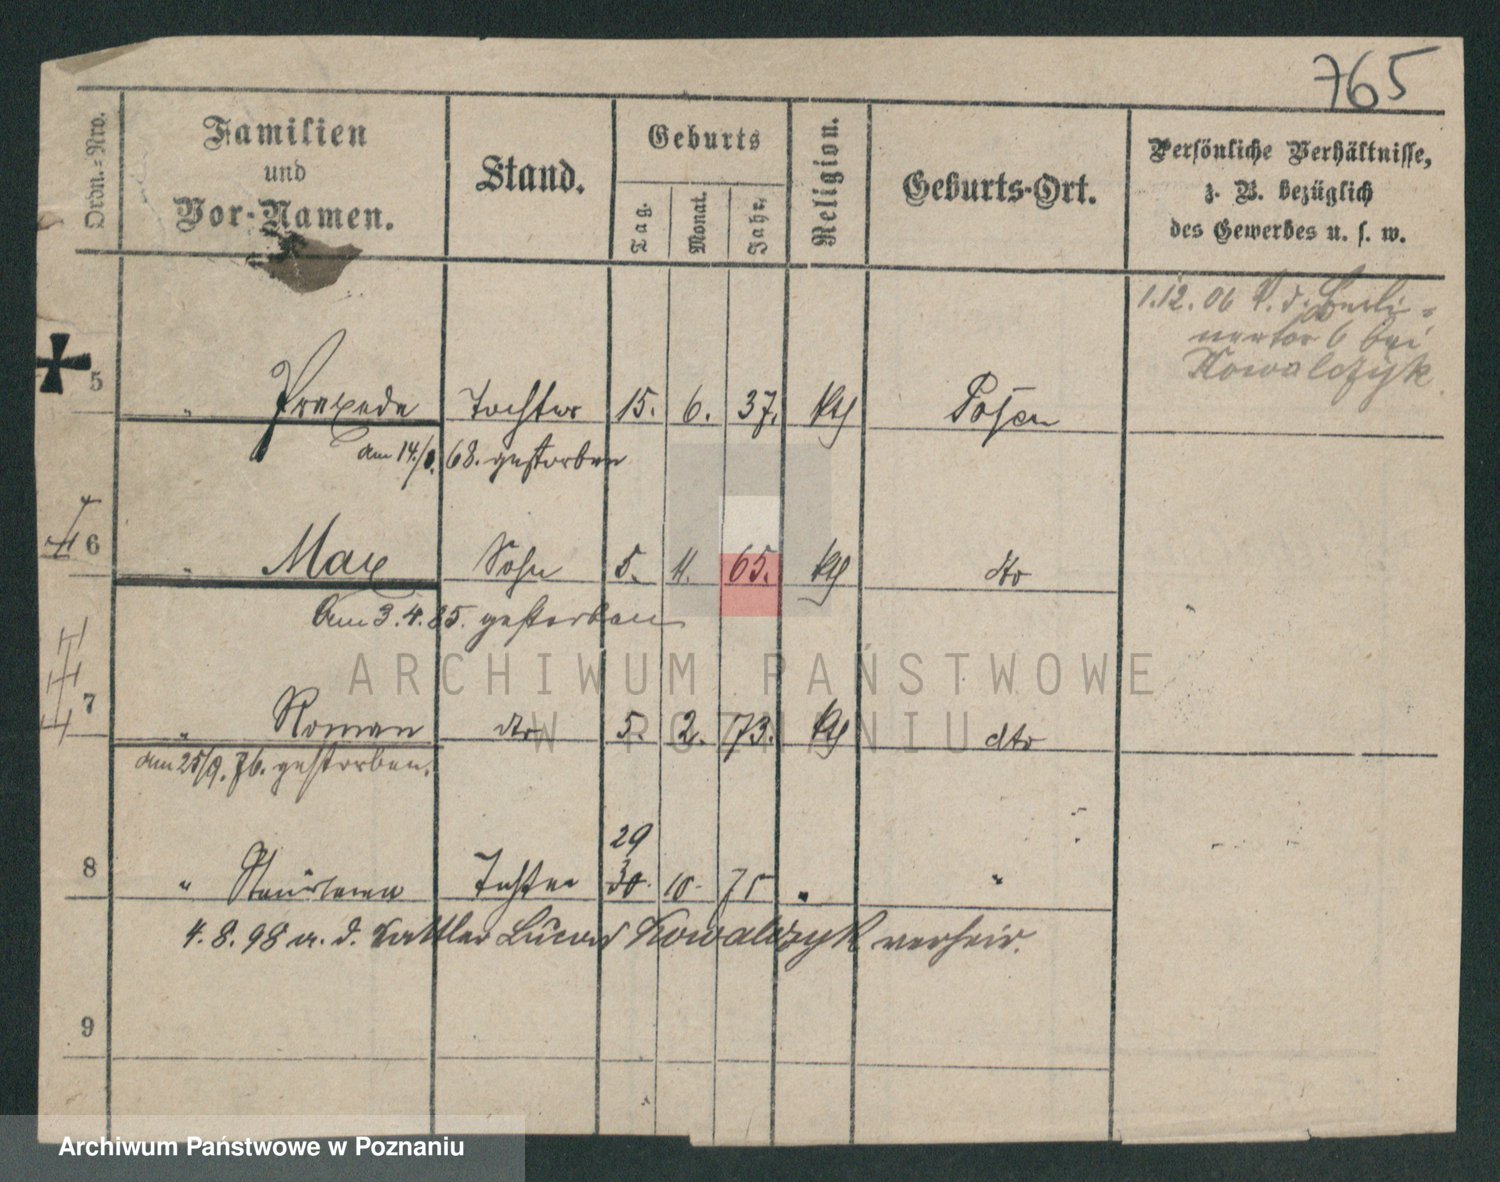 765
Ordn.=Nro.
Familien
und
Vor-Namen.
Stand.
Geburts
Tag.
Monat.
Jahr.
Religion.
Geburts-Ort.
Persönliche Verhältnisse,
z. B. bezüglich
des Gewerbes u. s. w.
1.12.06 V. d. Berli-
nertor 6 bei
Kowalczyk
5 " Praxede Tochter 15. 6. 37. kth Posen
Am 14./8. 68. gestorben
6 " Max Sohn 5. 11. 65. kth dto
Am 3.4.85. gestorben
7 " Roman dto 5. 2. 73. kth dto
Am 25/9. 76. gestorben.
29
8 " Tochter 30. 10. 75 " "
4.8.98 a. d. Sattler Lucas Kowalczyk verheir.
9
ARCHIWUM PAŃSTWOWE
W POZNANIU
Archiwum Państwowe w Poznaniu